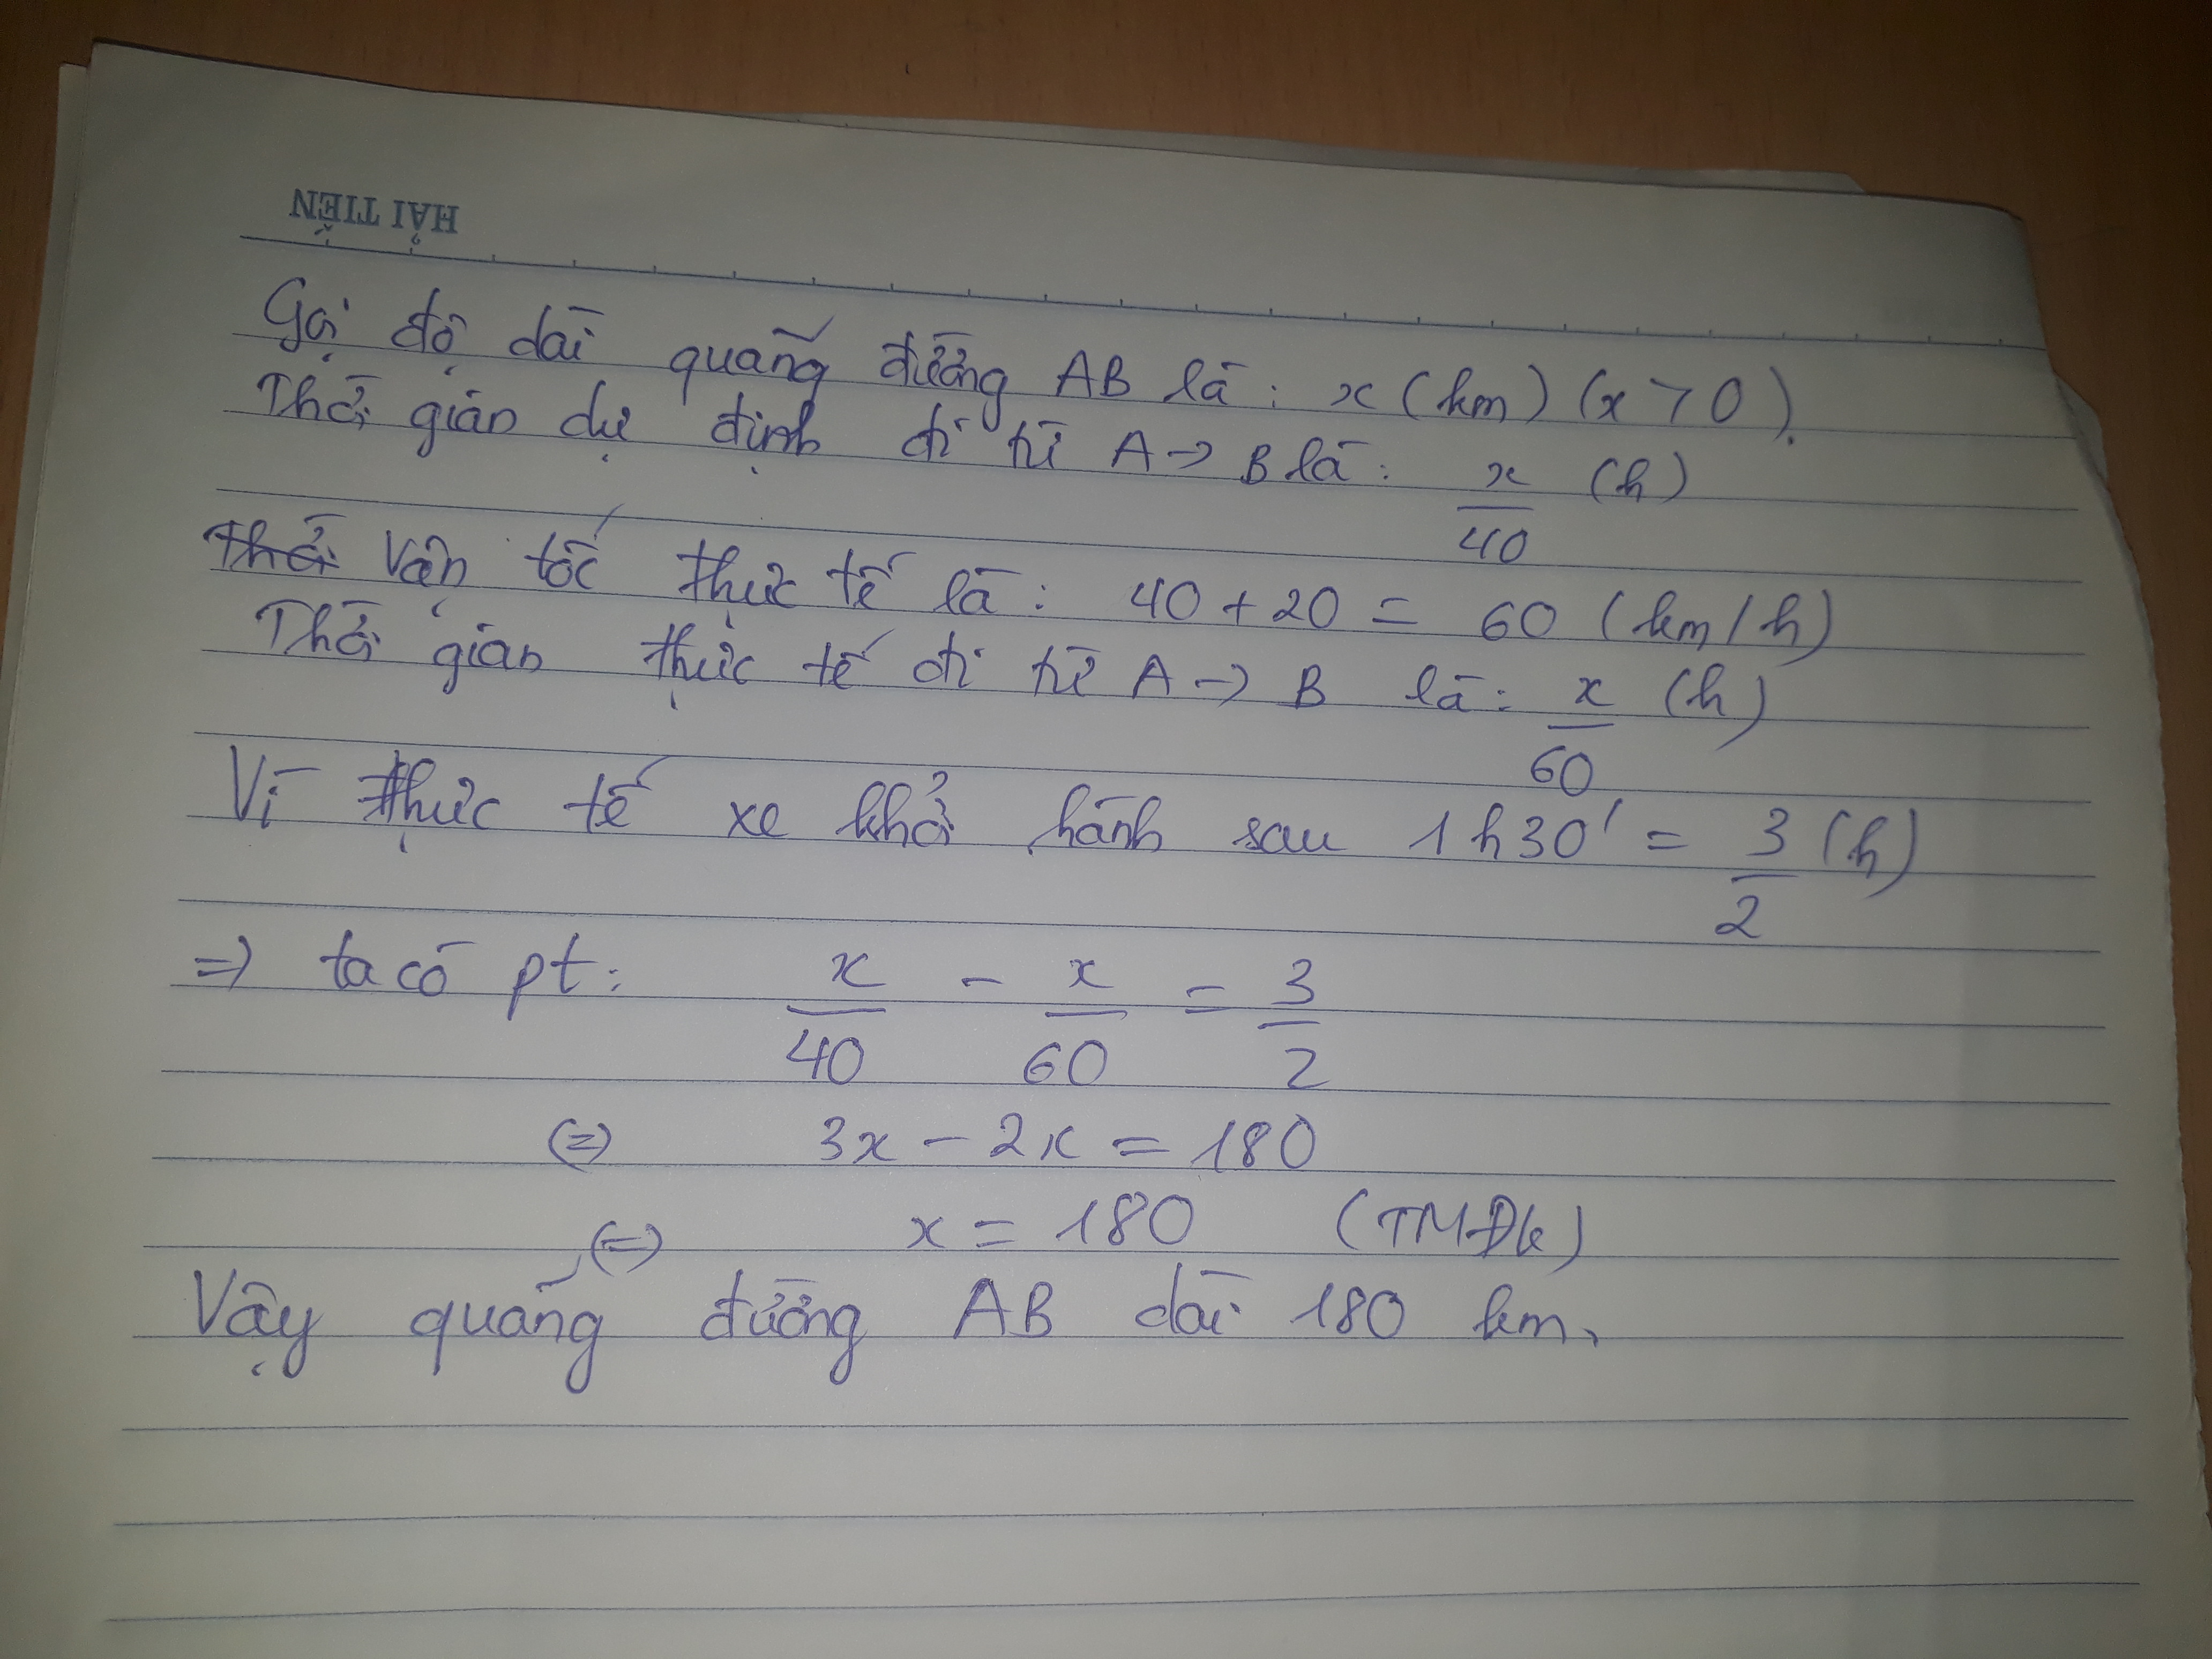 HẢI TIẾN
Gọi độ dài quãng đường AB là : x (km) (x > 0).
Thời gian dự định đi từ A → B là : x/40 (h)
Thời Vận tốc thực tế là : 40 + 20 = 60 (km/h)
Thời gian thực tế đi từ A → B là : x/60 (h)
Vì thực tế xe khởi hành sau 1h30' = 3/2 (h)
=> ta có pt : x/40 - x/60 = 3/2
(=) 3x - 2x = 180
(=) x = 180 (TMĐk)
Vậy quãng đường AB dài 180 km.